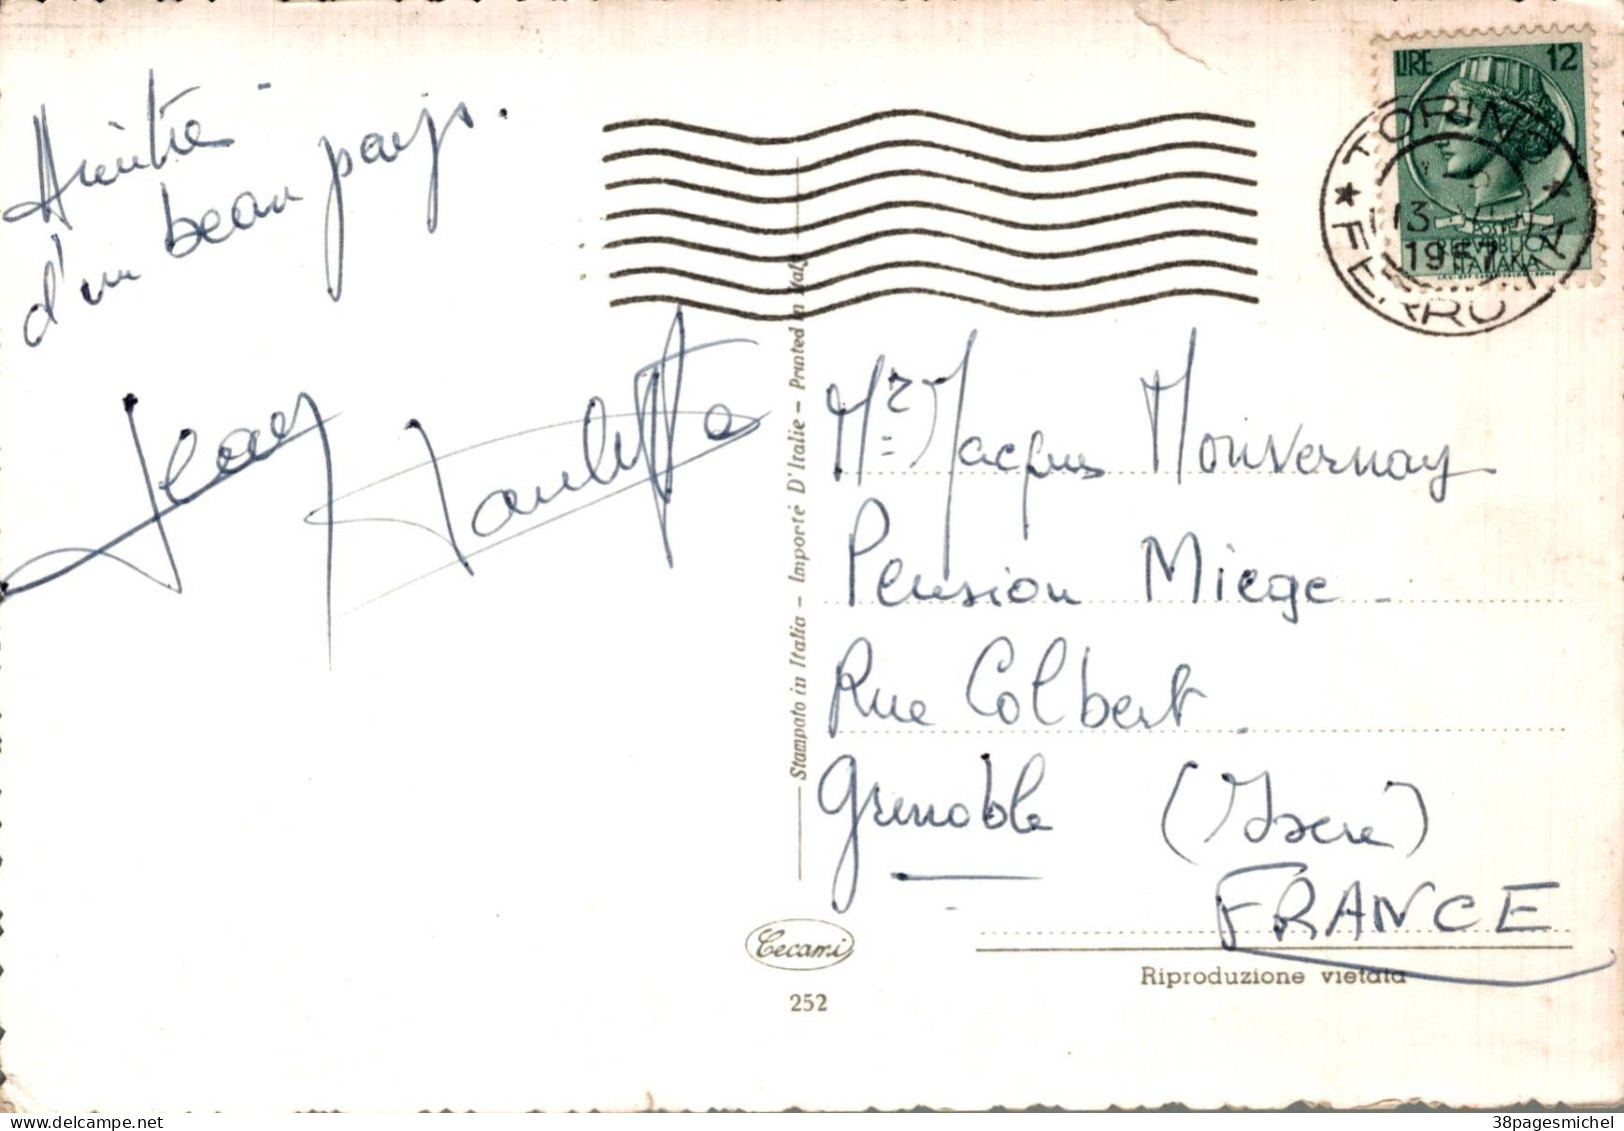 Amitié
d'un beau pays.
Jean
LIRE 12
TORINO
FERROVIA
13
1957
POSTE
REPVBBLICA
ITALIANA
Stampato in Italia - Importé D'Italie - Printed in Italy
Mr Jacques Monvernay
Pension Miege
Rue Colbert.
Grenoble (Isère)
FRANCE
Cecami
252
Riproduzione vietata
38pagesmichel